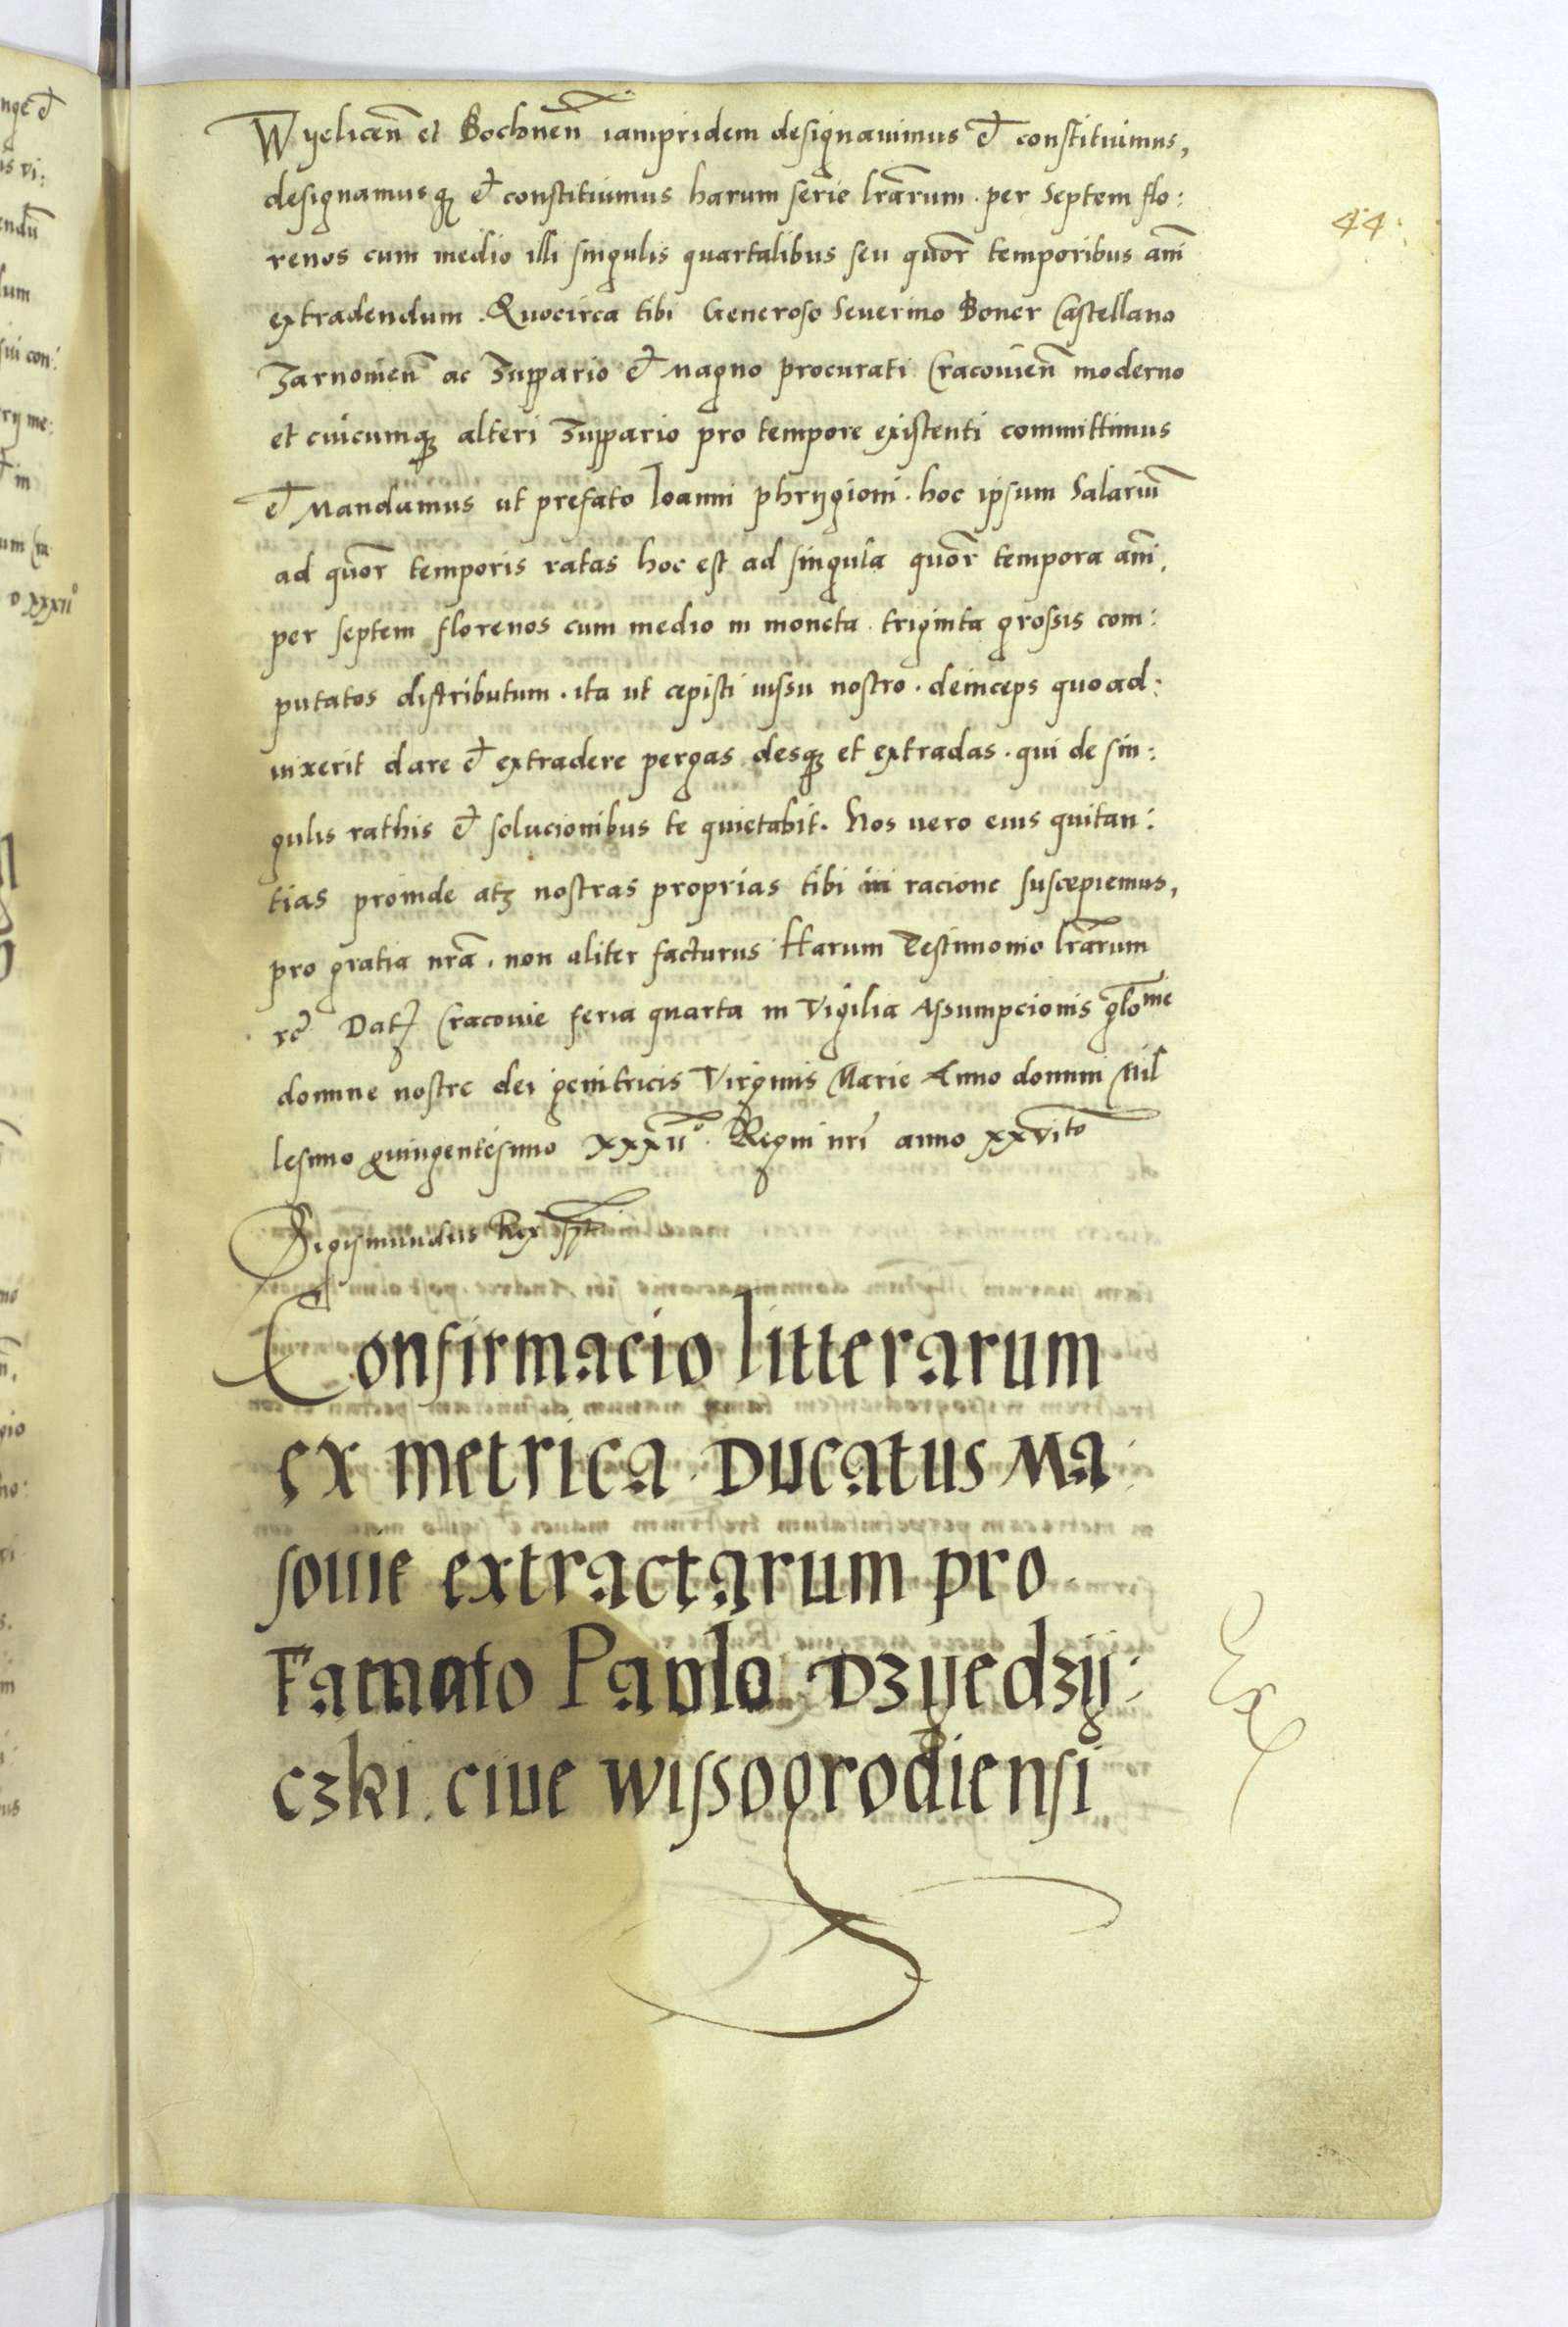 44
Wyelicen̄ et Bochnen̄ iampridem designauimus et constituimus,
designamusqȝ et constituimus harum serie lr̄arum . per Septem flo:
renos cum medio illi singulis quartalibus seu quōr temporibus anī
extradendum . Quocirca tibi Generoso Seuerino Boner Castellano
Zarnouien̄ ac Zuppario et Magno procurati Cracouien̄ moderno
et cuicumqȝ alteri Zuppario pro tempore existenti committimus
et Mandamus ut prefato Ioanni phrygioni . hoc ipsum Salariū
ad quōr temporis ratas hoc est ad singula quōr tempora anī,
per septem florenos cum medio in moneta . triginta grossis com:
putatos distributum . ita ut cepisti iussu nostro . deinceps quoad:
uixerit dare et extradere pergas desqȝ et extradas . qui de sin:
gulis rathis et solucionibus te quietabit. Nos uero eius quitan:
tias proinde atȝ nostras proprias tibi in racione suscepiemus,
pro gratia nr̄a . non aliter facturus Harum Testimonio lr̄arum
rc̄ Datȝ Cracouie feria quarta in Vigilia Assumpcionis glo͞me
domine nostre dei genitricis Virginis Marie Anno domini Mil
lesimo quingentesimo xxxii° . Regni nr̄i anno xxvito
Sigismundus Rex sst
Confirmacio litterarum
ex metrica Ducatus Ma:
souie extractarum pro
Famato Paulo Dzyedzy:
czki . ciue wissogrodiensi